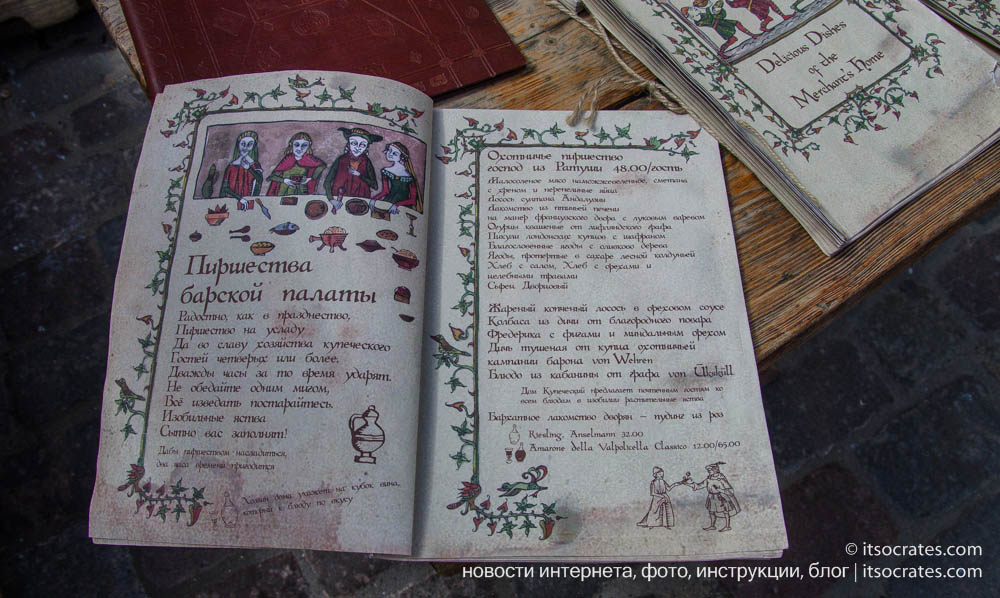 Delicious Dishes
of the
Merchant's Home
Пиршества
барской палаты
Радостно, как в празднество,
Пиршество на усладу
Да во славу хозяйства купеческого
Гостей четверых или более.
Дважды часы за то время ударят.
Не обедайте одним мигом,
Всё изведать постарайтесь.
Изобильные яства
Сытно вас заполнят!
Дабы пиршеством насладиться,
два часа времени пригодится
Хозяин дома укажет на кубок вина,
который к блюду по вкусу
Охотничье пиршество
господ из Ратуши 48.00/гость
Малосоленое мясо можжевеленное, сметана
с хреном и перепелиные яйца
Лосось султана Андалузии
Лакомство из птичьей печени
на манер французского двора с луковым варевом
Огурцы квашеные от лифляндского графа
Пикули лондонских купцов с шафраном
Благословенные ягоды с оливково дерева
Ягоды, протертые в сахаре лесной колдуньей
Хлеб с салом, Хлеб с орехами и
целебными травами
Сырец Дворцовый
Жареный копченый лосось в ореховом соусе
Колбаса из дичи от благородного повара
Фредерика с фигами и миндальным орехом
Дичь тушеная от купца охотничьей
кампании барона von Wehren
Блюдо из кабанины от графа von Üksküll
Дом Купеческий предлагает почтенным гостям ко
всем блюдам в изобилии растительные яства
Бархатное лакомство дворян – пудинг из роз
Riesling, Anselmann 32.00
Amarone della Valpolicella Classico 12.00/65.00
© itsocrates.com
новости интернета, фото, инструкции, блог | itsocrates.com